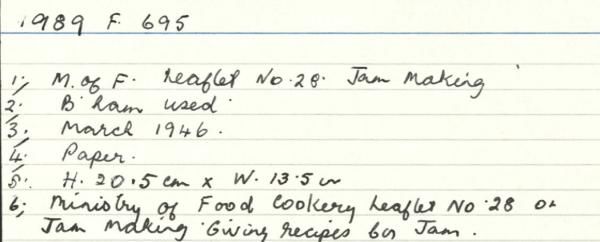 1989 F. 695
1; M. of F. Leaflet No. 28. Jam Making
2. B'ham used.
3; March 1946.
4. Paper.
5. H. 20.5 cm x W. 13.5 cm
6; Ministry of Food Cookery Leaflet No. 28 on
Jam Making. Giving recipes for Jam.